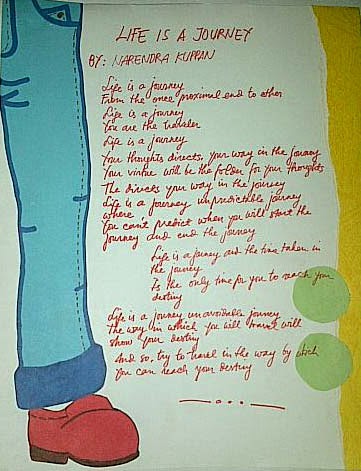 LIFE IS A JOURNEY
BY: NARENDRA KUPPAN
Life is a journey
From the once proximal end to other
Life is a journey
You are the traveler
Life is a journey
Your thoughts directs, your way in the journey
Your virtue will be the folder for your thoughts
The directs your way in the journey
Life is a journey unpredictable journey
where
You can't predict when you will start the
journey and end the journey
Life is a journey and the time taken in
the journey
Is the only time for you to reach your
destiny
Life is a journey unavoidable journey
The way in which you will travel will
show your destiny
And so, try to travel in the way by which
You can reach your destiny